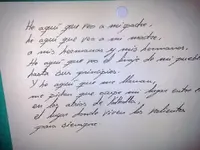 He aquí que veo a mi padre,
he aquí que veo a mi madre,
a mis hermanas y mis hermanos.
He aquí que veo el linaje de mi pueblo
hasta sus principios.
Y he aquí que me llaman,
me piden que ocupe mi lugar entre ellos
en los atrios de Valhalla,
el lugar donde viven los valientes
para siempre.